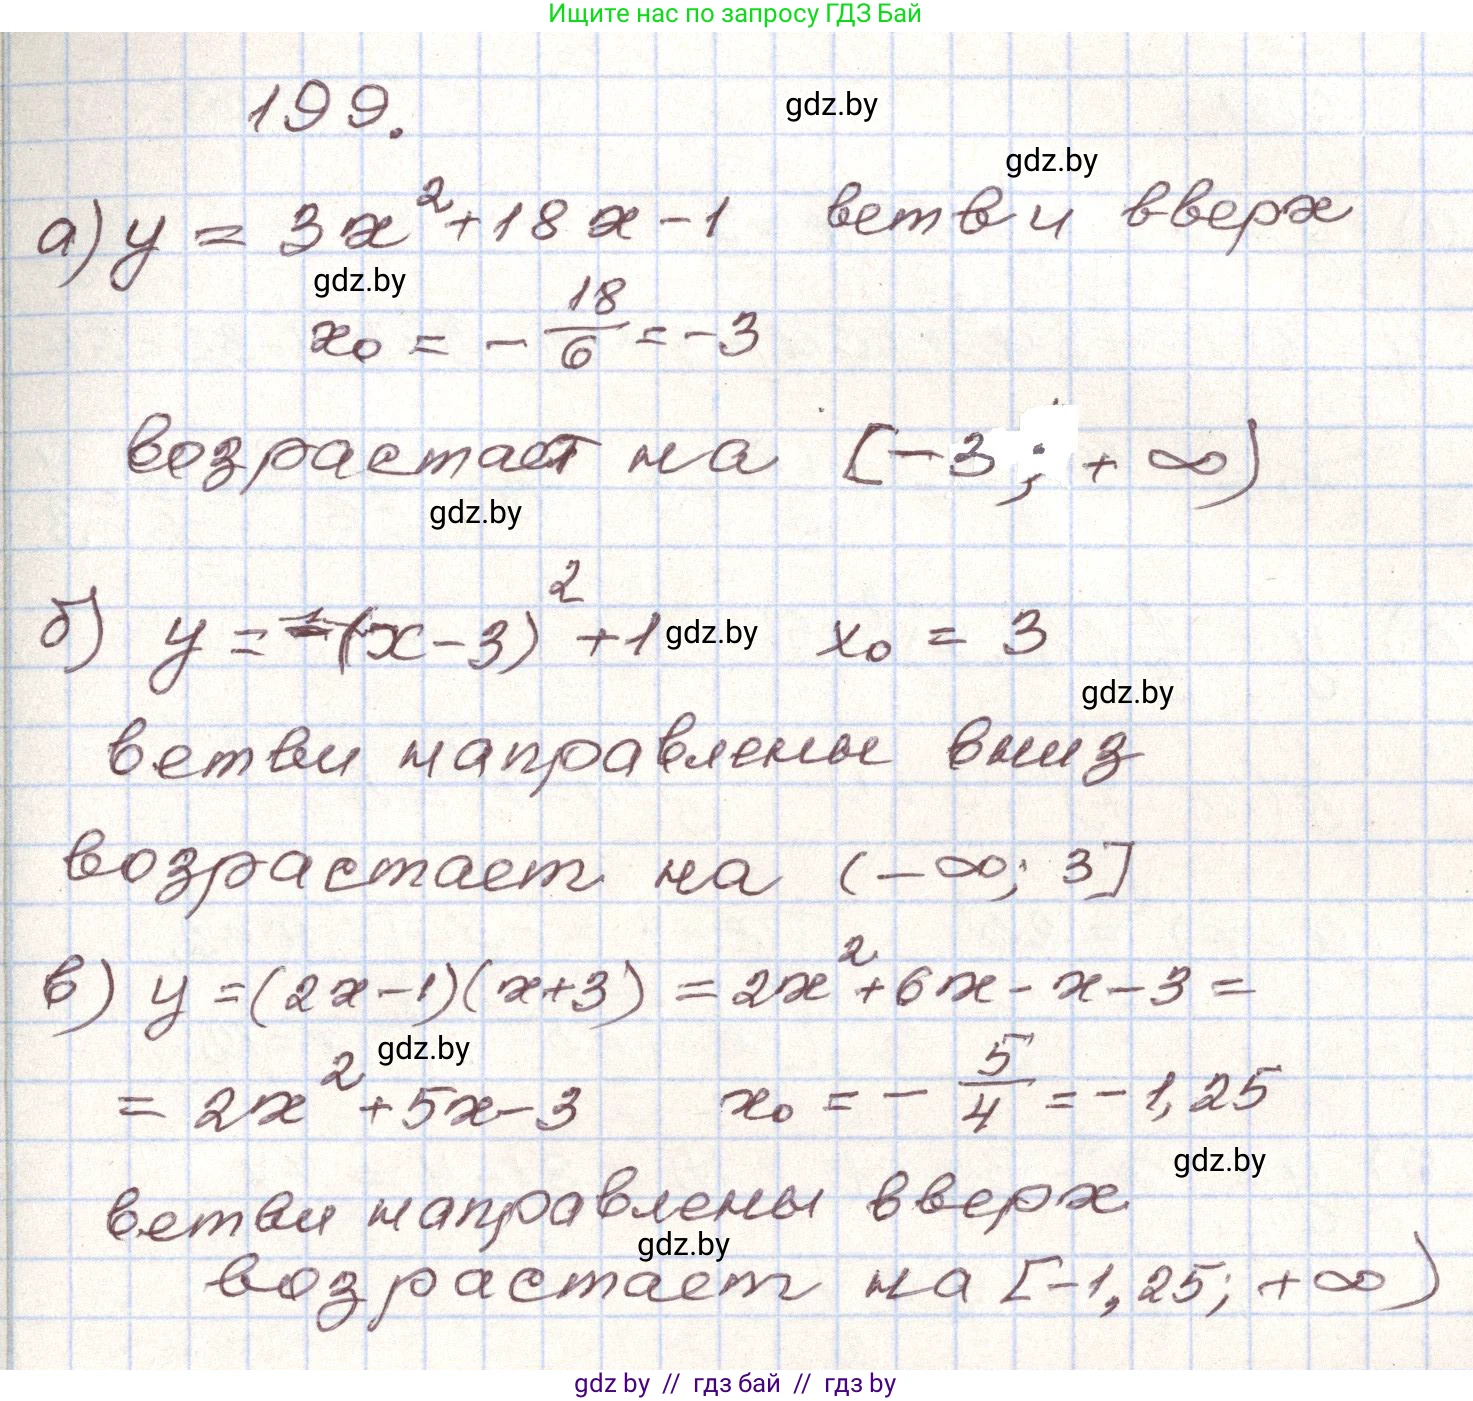 Ищите нас по запросу ГДЗ Бай
199.
gdz.by
gdz.by
а) y = 3x²+18x-1 ветви вверх
gdz.by
x₀ = - 18/6 = -3
возрастает на [-3; +∞)
gdz.by
б) y = -(x-3)² +1 gdz.by x₀ = 3
gdz.by
ветви направлены вниз
возрастает на (-∞; 3]
в) y =(2x-1)(x+3) = 2x²+6x-x-3 =
gdz.by
= 2x²+5x-3 x₀ = - 5/4 = -1,25
gdz.by
ветви направлены вверх
gdz.by
возрастает на [-1,25; +∞)
gdz by // гдз бай // гдз by